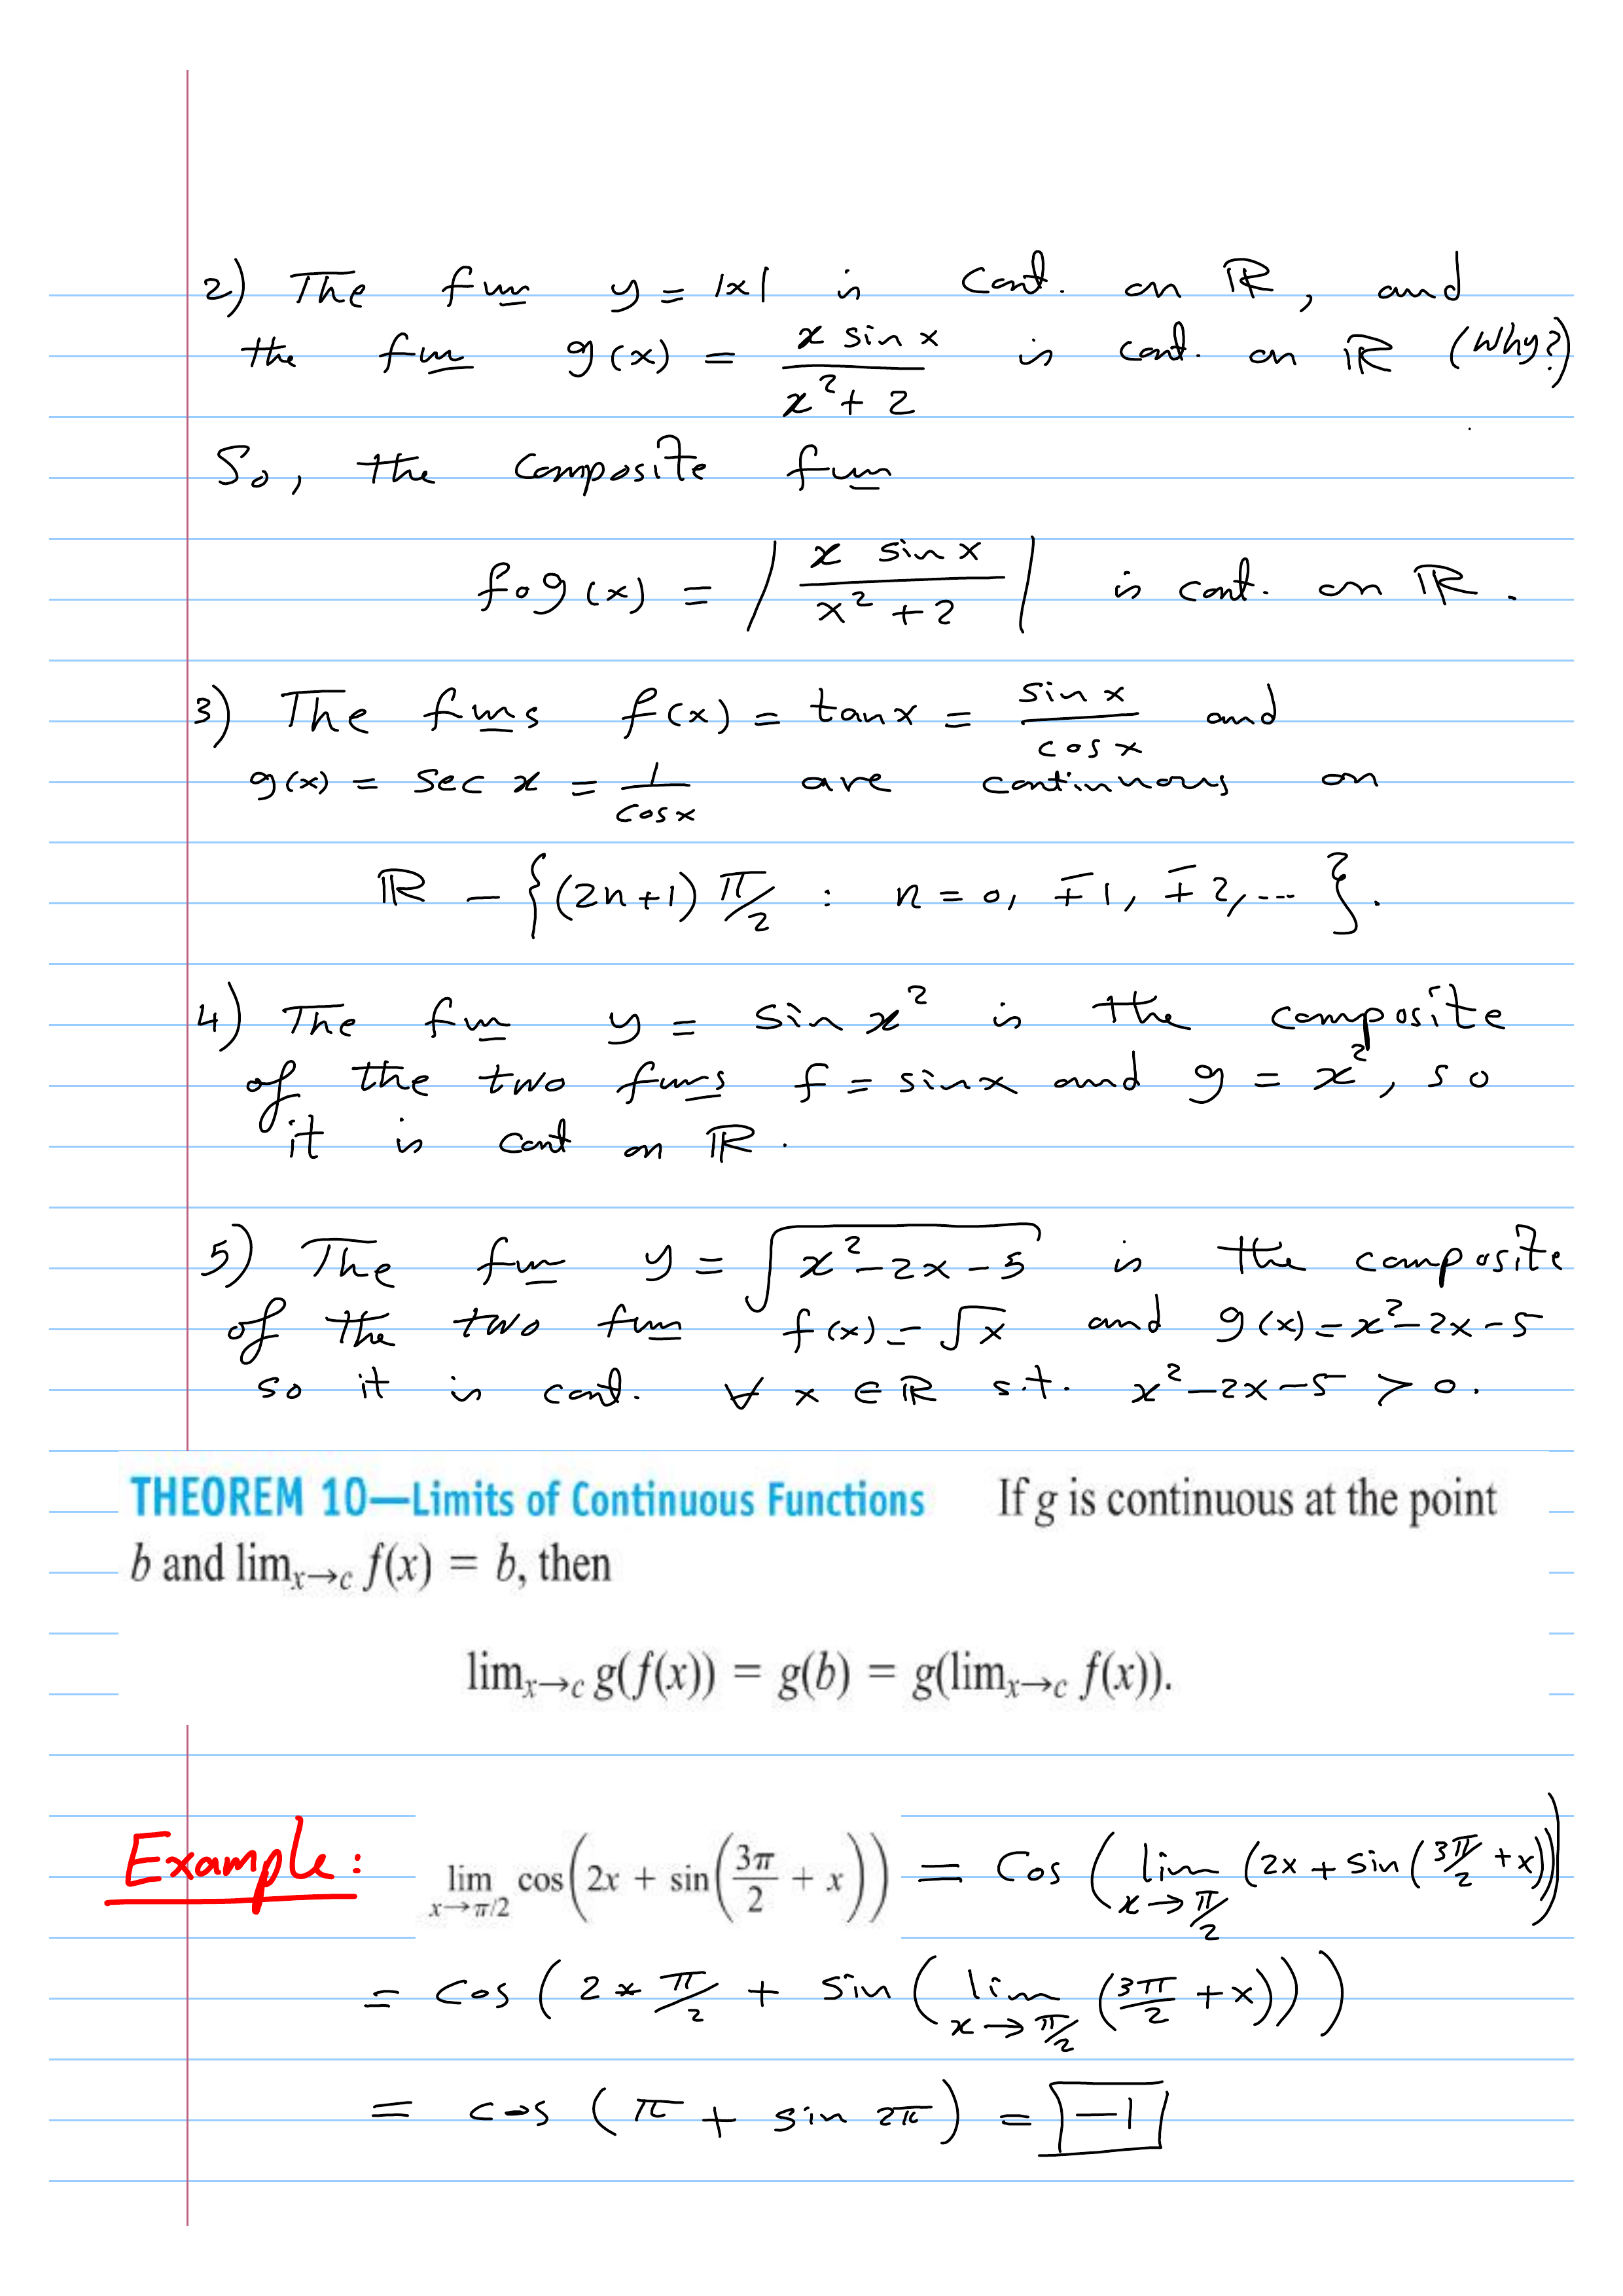 2) The fun y = |x| is cont. on ℝ, and
the fun g(x) = x sin x / x² + 2 is cont. on ℝ (Why?)
So, the composite fun
fog(x) = | x sin x / x² + 2 | is cont. on ℝ.
3) The funs f(x) = tan x = sin x / cos x and
g(x) = sec x = 1 / cos x are continuous on
ℝ − {(2n+1) π/2 : n = 0, ∓1, ∓2, --- }.
4) The fun y = sin x² is the composite
of the two funs f = sin x and g = x², so
it is cont on ℝ.
5) The fun y = √(x² − 2x − 5) is the composite
of the two fun f(x) = √x and g(x) = x² − 2x − 5
so it is cont. ∀ x ∈ ℝ s.t. x² − 2x − 5 > 0.
THEOREM 10—Limits of Continuous Functions If g is continuous at the point
b and limₓ→c f(x) = b, then
limₓ→c g(f(x)) = g(b) = g(limₓ→c f(x)).
Example: lim x→π/2 cos(2x + sin(3π/2 + x)) = Cos ( lim x→π/2 (2x + sin(3π/2 + x))
= cos ( 2 * π/2 + sin ( lim x→π/2 (3π/2 + x)))
= cos ( π + sin 2π ) = −1